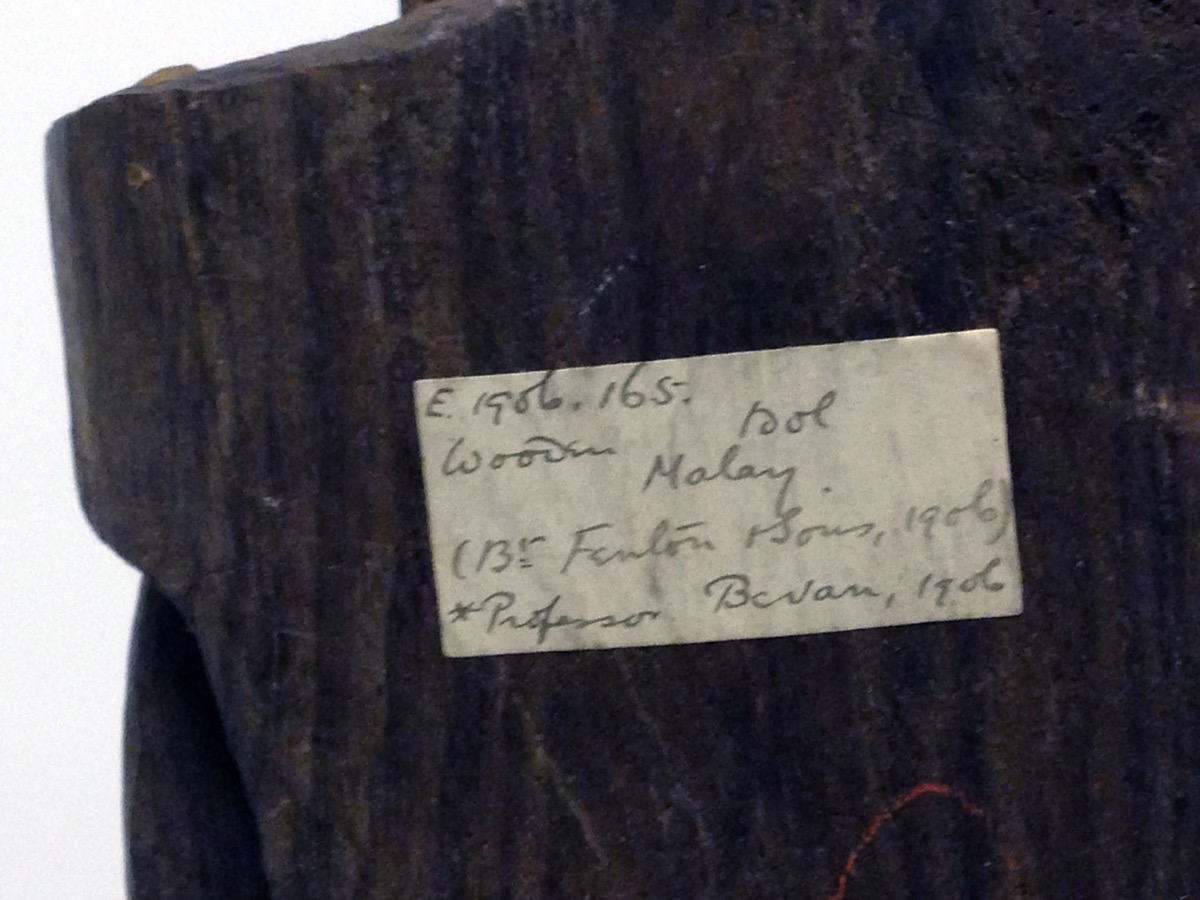 E. 1906. 165.
Wooden Idol
Malay.
(Bt Fenton & Sons, 1906)
*Professor Bevan, 1906